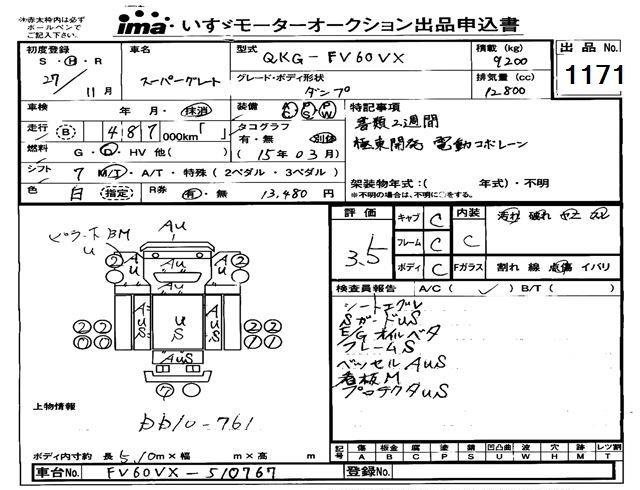 ※赤太枠内は必ずボールペンでご記入下さい。
ima いすゞモーターオークション出品申込書
初度登録 S・H・R 27 11月
車名 スーパーグレート
型式 QKG-FV60VX
積載 (kg) 9200
出品 No. 1171
グレード・ボディ形状 ダンプ
排気量 (cc) 12800
車検 年・月・抹消
装備 AC PS PW
特記事項
書類2週間
走行 B 487,000km「 」
タコグラフ 有・無 別体
極東開発 電動コボレーン
燃料 G・D・HV 他( )
(15年03月)
シフト 7 M/T・A/T・特殊(2ペダル・3ペダル)
架装物年式:( 年式)・不明
※不明の場合は、不明に○をする。
色 白 指定 R券 有・無 13,480円
評価 3.5
キャブ C
内装 C
汚れ 破れ
フレーム C
ボディ C
Fガラス 割れ 線 点傷 イバリ
検査員報告 A/C( ✓ ) B/T( )
シートエグレ
SガードUS
E/Gオイルベタ
フレームS
ベッセルAUS
看板M
プロテクタUS
AU
ピラー下BM
U
AUS
US
AUS
AUS
AUS
上物情報
DD10-761
ボディ内寸約 長5.10m×幅 m×高 m
記号 傷A 板金B 腐C 塗P 錆S 凹凸曲U 波W 穴H 跡M レツ割T
車台No. FV60VX-510767 登録No.